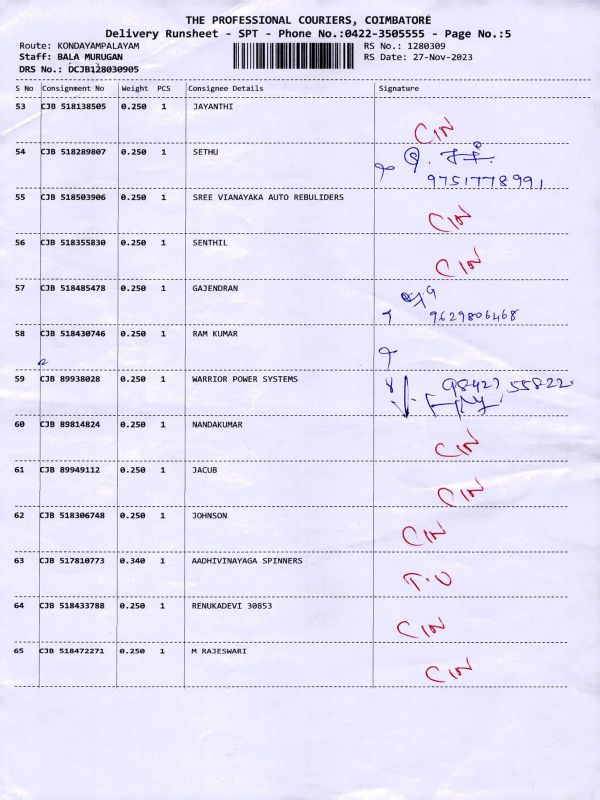 THE PROFESSIONAL COURIERS, COIMBATORE
Delivery Runsheet - SPT - Phone No.:0422-3505555 - Page No.:5
Route: KONDAYAMPALAYAM RS No.: 1280309
Staff: BALA MURUGAN RS Date: 27-Nov-2023
DRS No.: DCJB128030905
S No Consignment No Weight PCS Consignee Details Signature
53 CJB 518138505 0.250 1 JAYANTHI
CIN
54 CJB 518289807 0.250 1 SETHU
9751778991
55 CJB 518503906 0.250 1 SREE VIANAYAKA AUTO REBULIDERS
CIN
56 CJB 518355830 0.250 1 SENTHIL
CIN
57 CJB 518485478 0.250 1 GAJENDRAN
9629806468
58 CJB 518430746 0.250 1 RAM KUMAR
59 CJB 89938028 0.250 1 WARRIOR POWER SYSTEMS
98427 55822
60 CJB 89814824 0.250 1 NANDAKUMAR
CIN
61 CJB 89949112 0.250 1 JACUB
CIN
62 CJB 518306748 0.250 1 JOHNSON
CIN
63 CJB 517810773 0.340 1 AADHIVINAYAGA SPINNERS
T.U
64 CJB 518433788 0.250 1 RENUKADEVI 30853
CIN
65 CJB 518472271 0.250 1 M RAJESWARI
CIN